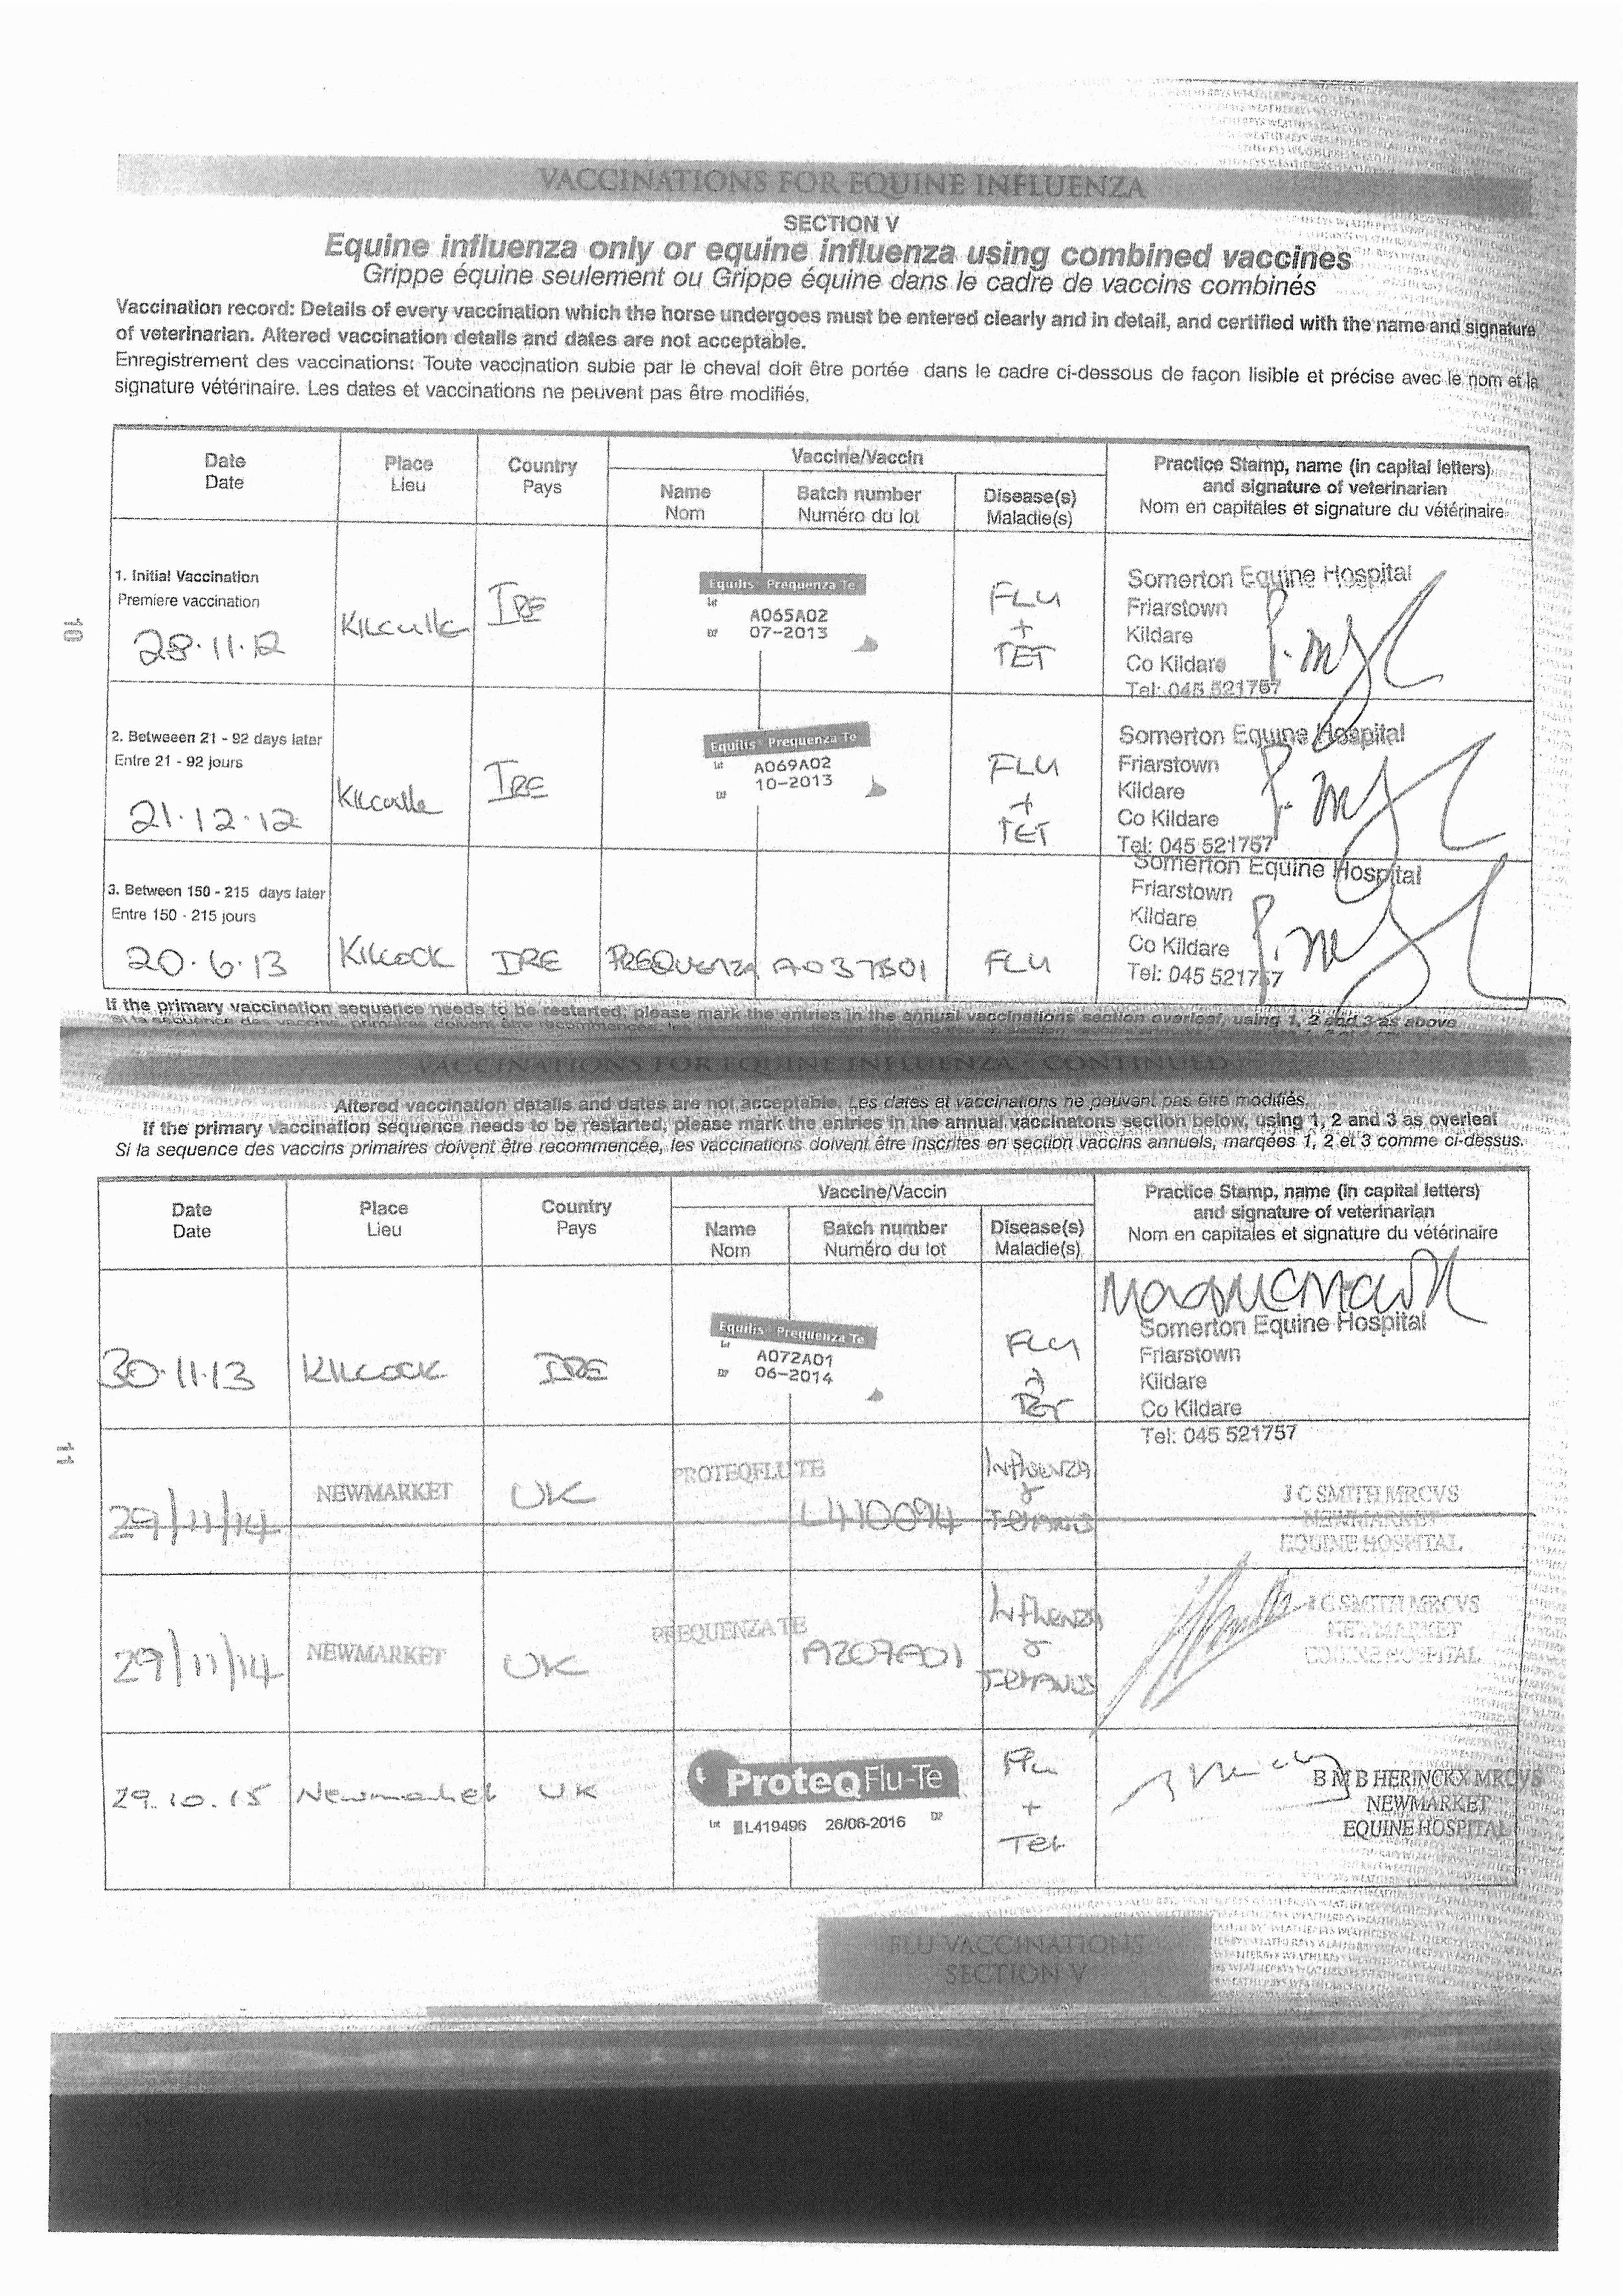 VACCINATIONS FOR EQUINE INFLUENZA
SECTION V
Equine influenza only or equine influenza using combined vaccines
Grippe équine seulement ou Grippe équine dans le cadre de vaccins combinés
Vaccination record: Details of every vaccination which the horse undergoes must be entered clearly and in detail, and certified with the name and signature
of veterinarian. Altered vaccination details and dates are not acceptable.
Enregistrement des vaccinations: Toute vaccination subie par le cheval doit être portée dans le cadre ci-dessous de façon lisible et précise avec le nom et la
signature vétérinaire. Les dates et vaccinations ne peuvent pas être modifiés.
Date
Date
Place
Lieu
Country
Pays
Vaccine/Vaccin
Name
Nom
Batch number
Numéro du lot
Disease(s)
Maladie(s)
Practice Stamp, name (in capital letters)
and signature of veterinarian
Nom en capitales et signature du vétérinaire
10
1. Initial Vaccination
Premiere vaccination
28.11.12
Kilculle
IRE
Equilis Prequenza Te
Lot
A065A02
EXP 07-2013
FLU
+
TET
Somerton Equine Hospital
Friarstown
Kildare
Co Kildare
Tel: 045 521757
2. Betweeen 21 - 92 days later
Entre 21 - 92 jours
21.12.12
IRE
Equilis Prequenza Te
Lot A069A02
10-2013
FLU
+
TET
Somerton Equine Hospital
Friarstown
Kildare
Co Kildare
Tel: 045 521757
3. Between 150 - 215 days later
Entre 150 - 215 jours
20.6.13
KILCOCK
IRE
PREQUENZA
A037B01
FLU
Somerton Equine Hospital
Friarstown
Kildare
Co Kildare
Tel: 045 521757
If the primary vaccination sequence needs to be restarted, please mark the entries in the annual vaccinations section overleaf, using 1, 2 and 3 as above
VACCINATIONS FOR EQUINE INFLUENZA - CONTINUED
Altered vaccination details and dates are not acceptable. Les dates et vaccinations ne peuvent pas être modifiés.
If the primary vaccination sequence needs to be restarted, please mark the entries in the annual vaccinatons section below, using 1, 2 and 3 as overleaf
Si la sequence des vaccins primaires doivent être recommencée, les vaccinations doivent être inscrites en section vaccins annuels, marqées 1, 2 et 3 comme ci-dessus.
Date
Date
Place
Lieu
Country
Pays
Vaccine/Vaccin
Name
Nom
Batch number
Numéro du lot
Disease(s)
Maladie(s)
Practice Stamp, name (in capital letters)
and signature of veterinarian
Nom en capitales et signature du vétérinaire
30.11.13
KILCOCK
IRE
Equilis Prequenza Te
Lot A072A01
EXP 06-2014
FLU
+
TET
Somerton Equine Hospital
Friarstown
Kildare
Co Kildare
Tel: 045 521757
11
29/11/14
NEWMARKET
UK
PROTEQFLU TE
L410094
Influenza
&
Tetanus
J C SMITH MRCVS
NEWMARKET
EQUINE HOSPITAL
29/11/14
NEWMARKET
UK
PREQUENZA TE
A207A01
Influenza
&
Tetanus
J C SMITH MRCVS
NEWMARKET
EQUINE HOSPITAL
29.10.15
Newmarket
UK
ProteqFlu-Te
Lot L419496 26/06/2016 EXP
Flu
+
Tet
B M B HERINCKX MRCVS
NEWMARKET
EQUINE HOSPITAL
FLU VACCINATIONS
SECTION V